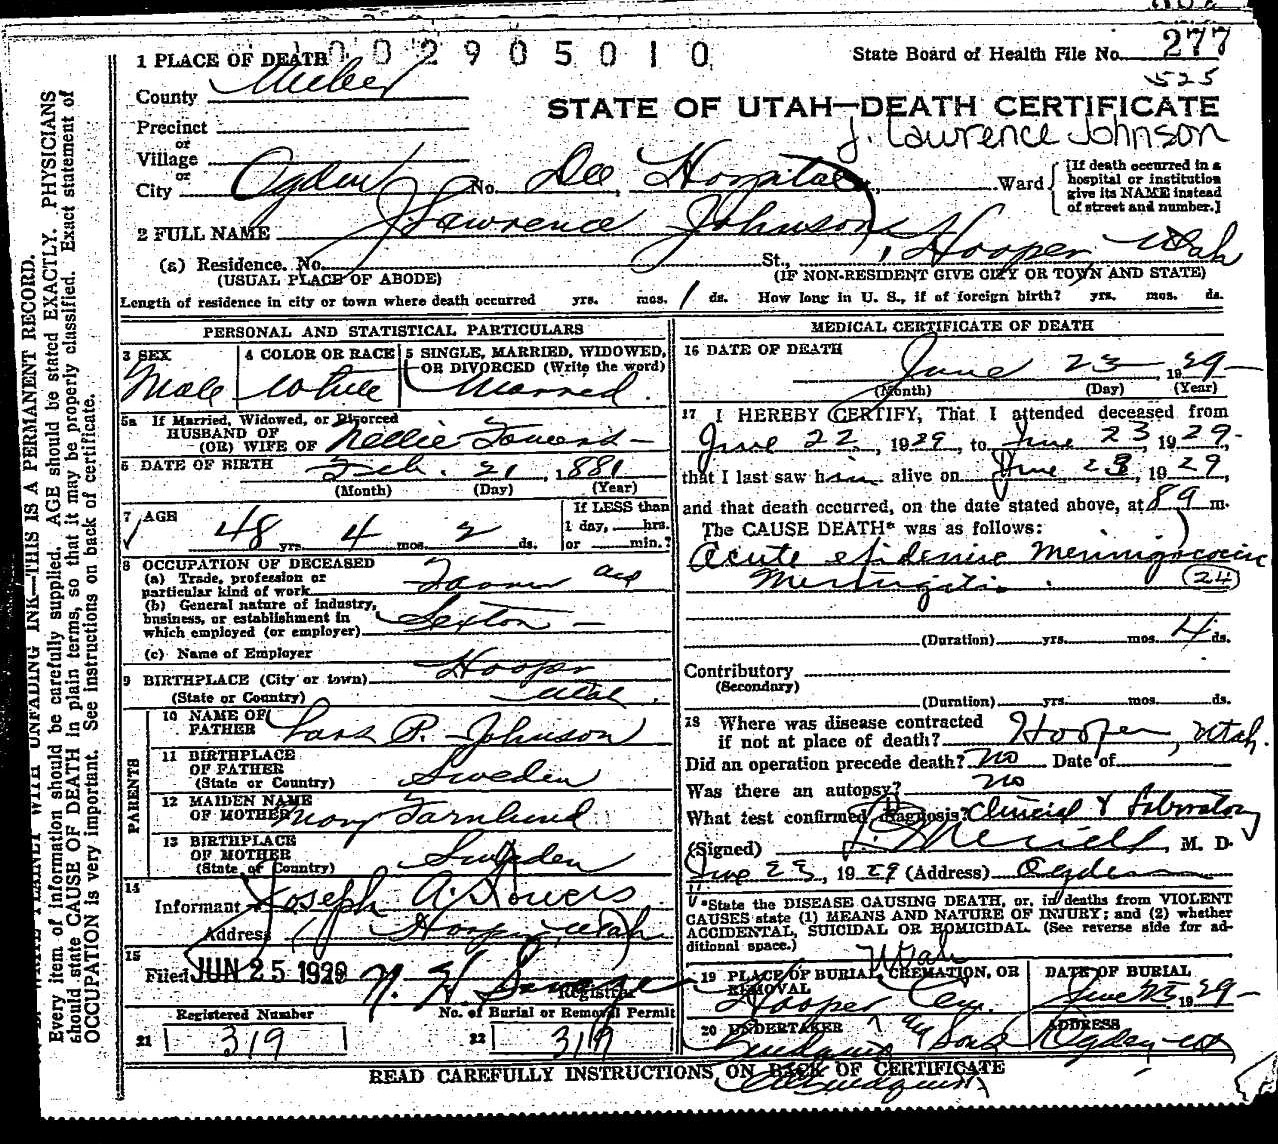 1 PLACE OF DEATH
1002905010
State Board of Health File No. 277
525
County Weber
STATE OF UTAH—DEATH CERTIFICATE
J. Lawrence Johnson
Precinct
or
Village
or
City Ogden No. Dee Hospital St., Ward
[If death occurred in a hospital or institution give its NAME instead of street and number.]
2 FULL NAME J. Lawrence Johnson
(a) Residence. No. St., Hooper Utah
(USUAL PLACE OF ABODE) (IF NON-RESIDENT GIVE CITY OR TOWN AND STATE)
Length of residence in city or town where death occurred yrs. mos. 1 ds. How long in U. S., if of foreign birth? yrs. mos. ds.
PERSONAL AND STATISTICAL PARTICULARS
3 SEX
Male
4 COLOR OR RACE
White
5 SINGLE, MARRIED, WIDOWED,
OR DIVORCED (Write the word)
Married.
5a If Married, Widowed, or Divorced
HUSBAND OF
(OR) WIFE OF Nellie
6 DATE OF BIRTH Feb. 21, 1881
(Month) (Day) (Year)
7 AGE
48 yrs. 4 mos. 2 ds.
If LESS than
1 day, hrs.
or min.?
8 OCCUPATION OF DECEASED
(a) Trade, profession or
particular kind of work Farmer and
(b) General nature of industry,
business, or establishment in
which employed (or employer) Sexton
(c) Name of Employer
9 BIRTHPLACE (City or town) Hooper
(State or Country) Utah.
PARENTS
10 NAME OF
FATHER Lars P. Johnson
11 BIRTHPLACE
OF FATHER
(State or Country) Sweden
12 MAIDEN NAME
OF MOTHER Mary
13 BIRTHPLACE
OF MOTHER
(State or Country) Sweden
14
Informant Joseph A.
Address Hooper, Utah
15
Filed JUN 25 1929
Registrar
Registered Number
No. of Burial or Removal Permit
21 319
22 319
MEDICAL CERTIFICATE OF DEATH
16 DATE OF DEATH
June 23 1929
(Month) (Day) (Year)
17 I HEREBY CERTIFY, That I attended deceased from
June 22, 1929, to June 23 1929
that I last saw him alive on June 23, 1929,
and that death occurred, on the date stated above, at 8 m.
The CAUSE DEATH* was as follows:
Acute epidemic Meningococcic
Meningitis. 24
(Duration) yrs. mos. 4 ds.
Contributory
(Secondary)
(Duration) yrs. mos. ds.
18 Where was disease contracted
if not at place of death? Hooper, Utah.
Did an operation precede death? no Date of
Was there an autopsy? no
What test confirmed diagnosis? Clinical & Laboratory
(Signed) Merrill, M. D.
June 23, 1929 (Address) Ogden
*State the DISEASE CAUSING DEATH, or, in deaths from VIOLENT
CAUSES state (1) MEANS AND NATURE OF INJURY; and (2) whether
ACCIDENTAL, SUICIDAL OR HOMICIDAL. (See reverse side for ad-
ditional space.)
Utah
19 PLACE OF BURIAL, CREMATION, OR
REMOVAL
Hooper Cem.
DATE OF BURIAL
June 25 1929
20 UNDERTAKER
Lindquist and Sons
ADDRESS
Ogden
READ CAREFULLY INSTRUCTIONS ON BACK OF CERTIFICATE
WRITE PLAINLY WITH UNFADING INK—THIS IS A PERMANENT RECORD.
Every item of information should be carefully supplied. AGE should be stated EXACTLY. PHYSICIANS
should state CAUSE OF DEATH in plain terms, so that it may be properly classified. Exact statement of
OCCUPATION is very important. See instructions on back of certificate.